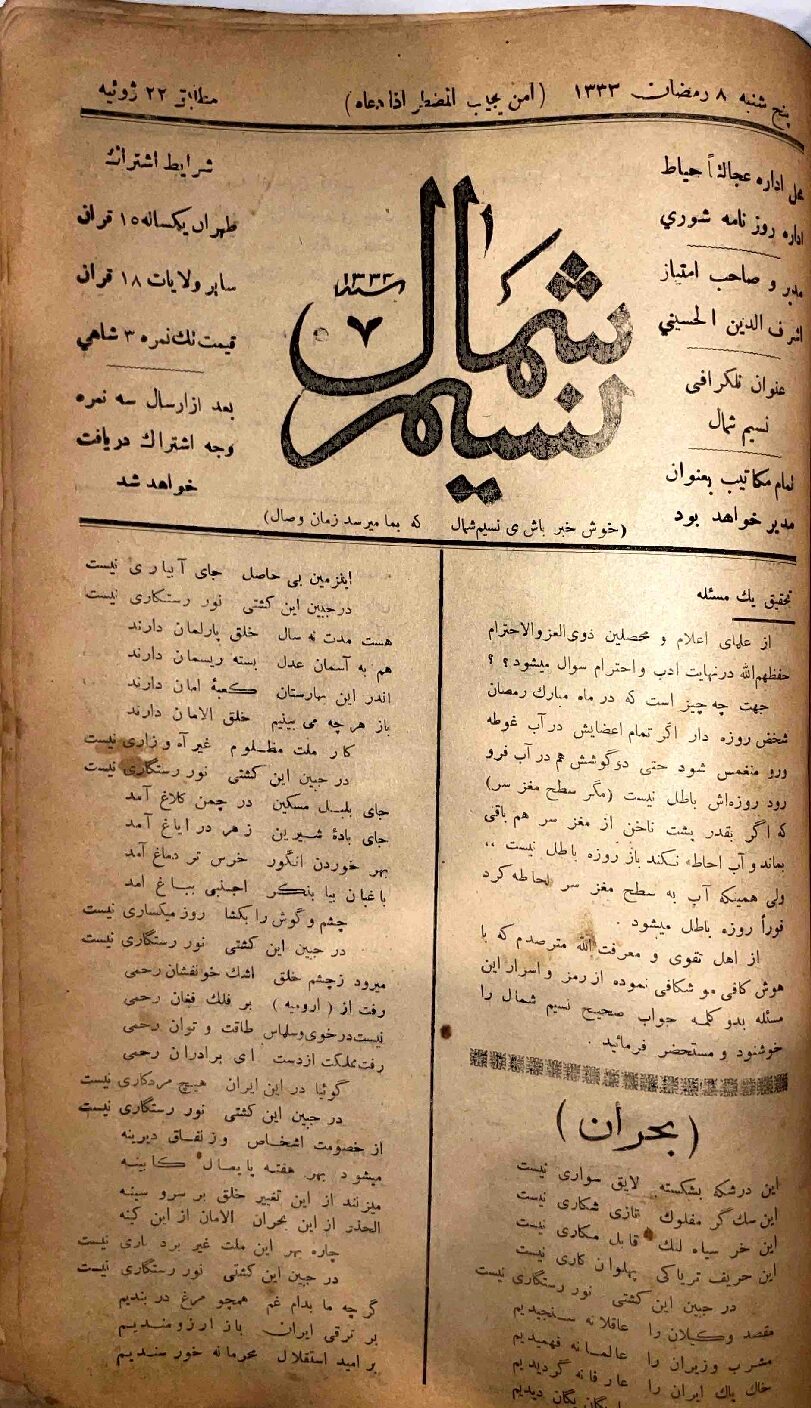 پنج شنبه ۸ رمضان ۱۳۳۳ (امن یجیب المضطر اذا دعاه) مطابق ۲۲ ژوئیه
محل اداره عجالةاً حیاط
اداره روزنامه شوری
مدیر و صاحب امتیاز
اشرف الدین الحسینی
عنوان تلگرافی
نسیم شمال
تمام مکاتیب بعنوان
مدیر خواهد بود
نسیم شمال
سنه ۱۳۳۳
۷
شرایط اشتراک
طهران یکساله ۱۵ قران
سایر ولایات ۱۸ قران
قیمت تک نمره ۳ شاهی
بعد از ارسال سه نمره
وجه اشتراک دریافت
خواهد شد
(خوش خبر باش ی نسیم شمال که بما میرسد زمان وصال)
تحقیق یک مسئله
از علمای اعلام و محصلین ذوی العز والاحترام
حفظهم الله در نهایت ادب و احترام سوال میشود؟ ؟
جهت چه چیز است که در ماه مبارک رمضان
شخص روزه دار اگر تمام اعضایش در آب غوطه
ورو منغمس شود حتی دو گوشش هم در آب فرو
رود روزه‌اش باطل نیست (مگر سطح مغز سر)
که اگر بقدر پشت ناخن از مغز سر هم باقی
بماند و آب احاطه نکند باز روزه باطل نیست ،،
ولی همینکه آب به سطح مغز سر احاطه کرد
فوراً روزه باطل میشود .
از اهل تقوی و معرفت الله مترصدم که با
هوش کافی مو شکافی نموده از رمز و اسرار این
مسئله بدو کلمه جواب صحیح نسیم شمال را
خوشنود و مستحضر فرمائید .
(بحران)
این درشکه بشکسته لایق سواری نیست
این سگ گر مفلوک تازی شکاری نیست
این خر سیاه لنگ قابل مکاری نیست
این حریف تریاکی پهلوان کاری نیست
در جبین این کشتی نور رستگاری نیست
مقصد وکیلان را عاقلانه سنجیدیم
مشرب وزیران را عالمانه فهمیدیم
خاک پاک ایران را عارفانه گردیدیم
یگان یگان دیدیم
اینزمین بی حاصل جای آبیاری نیست
در جبین این کشتی نور رستگاری نیست
هست مدت نه سال خلق پارلمان دارند
هم به آسمان عدل بسته ریسمان دارند
اندر این بهارستان کعبهٔ امان دارند
باز هر چه می بینیم خلق الامان دارند
کار ملت مظلوم غیر آه و زاری نیست
در جبین این کشتی نور رستگاری نیست
جای بلبل مسکین در چمن کلاغ آمد
جای بادهٔ شیرین زهر در ایاغ آمد
بهر خوردن انگور خرس تر دماغ آمد
باغبان بیا بنگر اجنبی بباغ امد
چشم و گوش را بکشا روز میکساری نیست
در جبین این کشتی نور رستگاری نیست
میرود زچشم خلق اشک خونفشان رحمی
رفت از (ارومیه) بر فلک فغان رحمی
نیست در خوی و سلماس طاقت و توان رحمی
رفت مملکت از دست ای برادران رحمی
گوئیا در این ایران هیچ مردکاری نیست
در جبین این کشتی نور رستگاری نیست
از خصومت اشخاص وز نفاق دیرینه
میشود بهر هفته پایمال کابینه
میزنند از این تغییر خلق بر سر و سینه
الحذر از این بحران الامان از این کینه
چاره بهر این ملت غیر بردباری نیست
در جبین این کشتی نور رستگاری نیست
گر چه ما بدام غم همچو مرغ در بندیم
بر ترقی ایران باز ارزومندیم
بر امید استقلال محرمانه خورسندیم